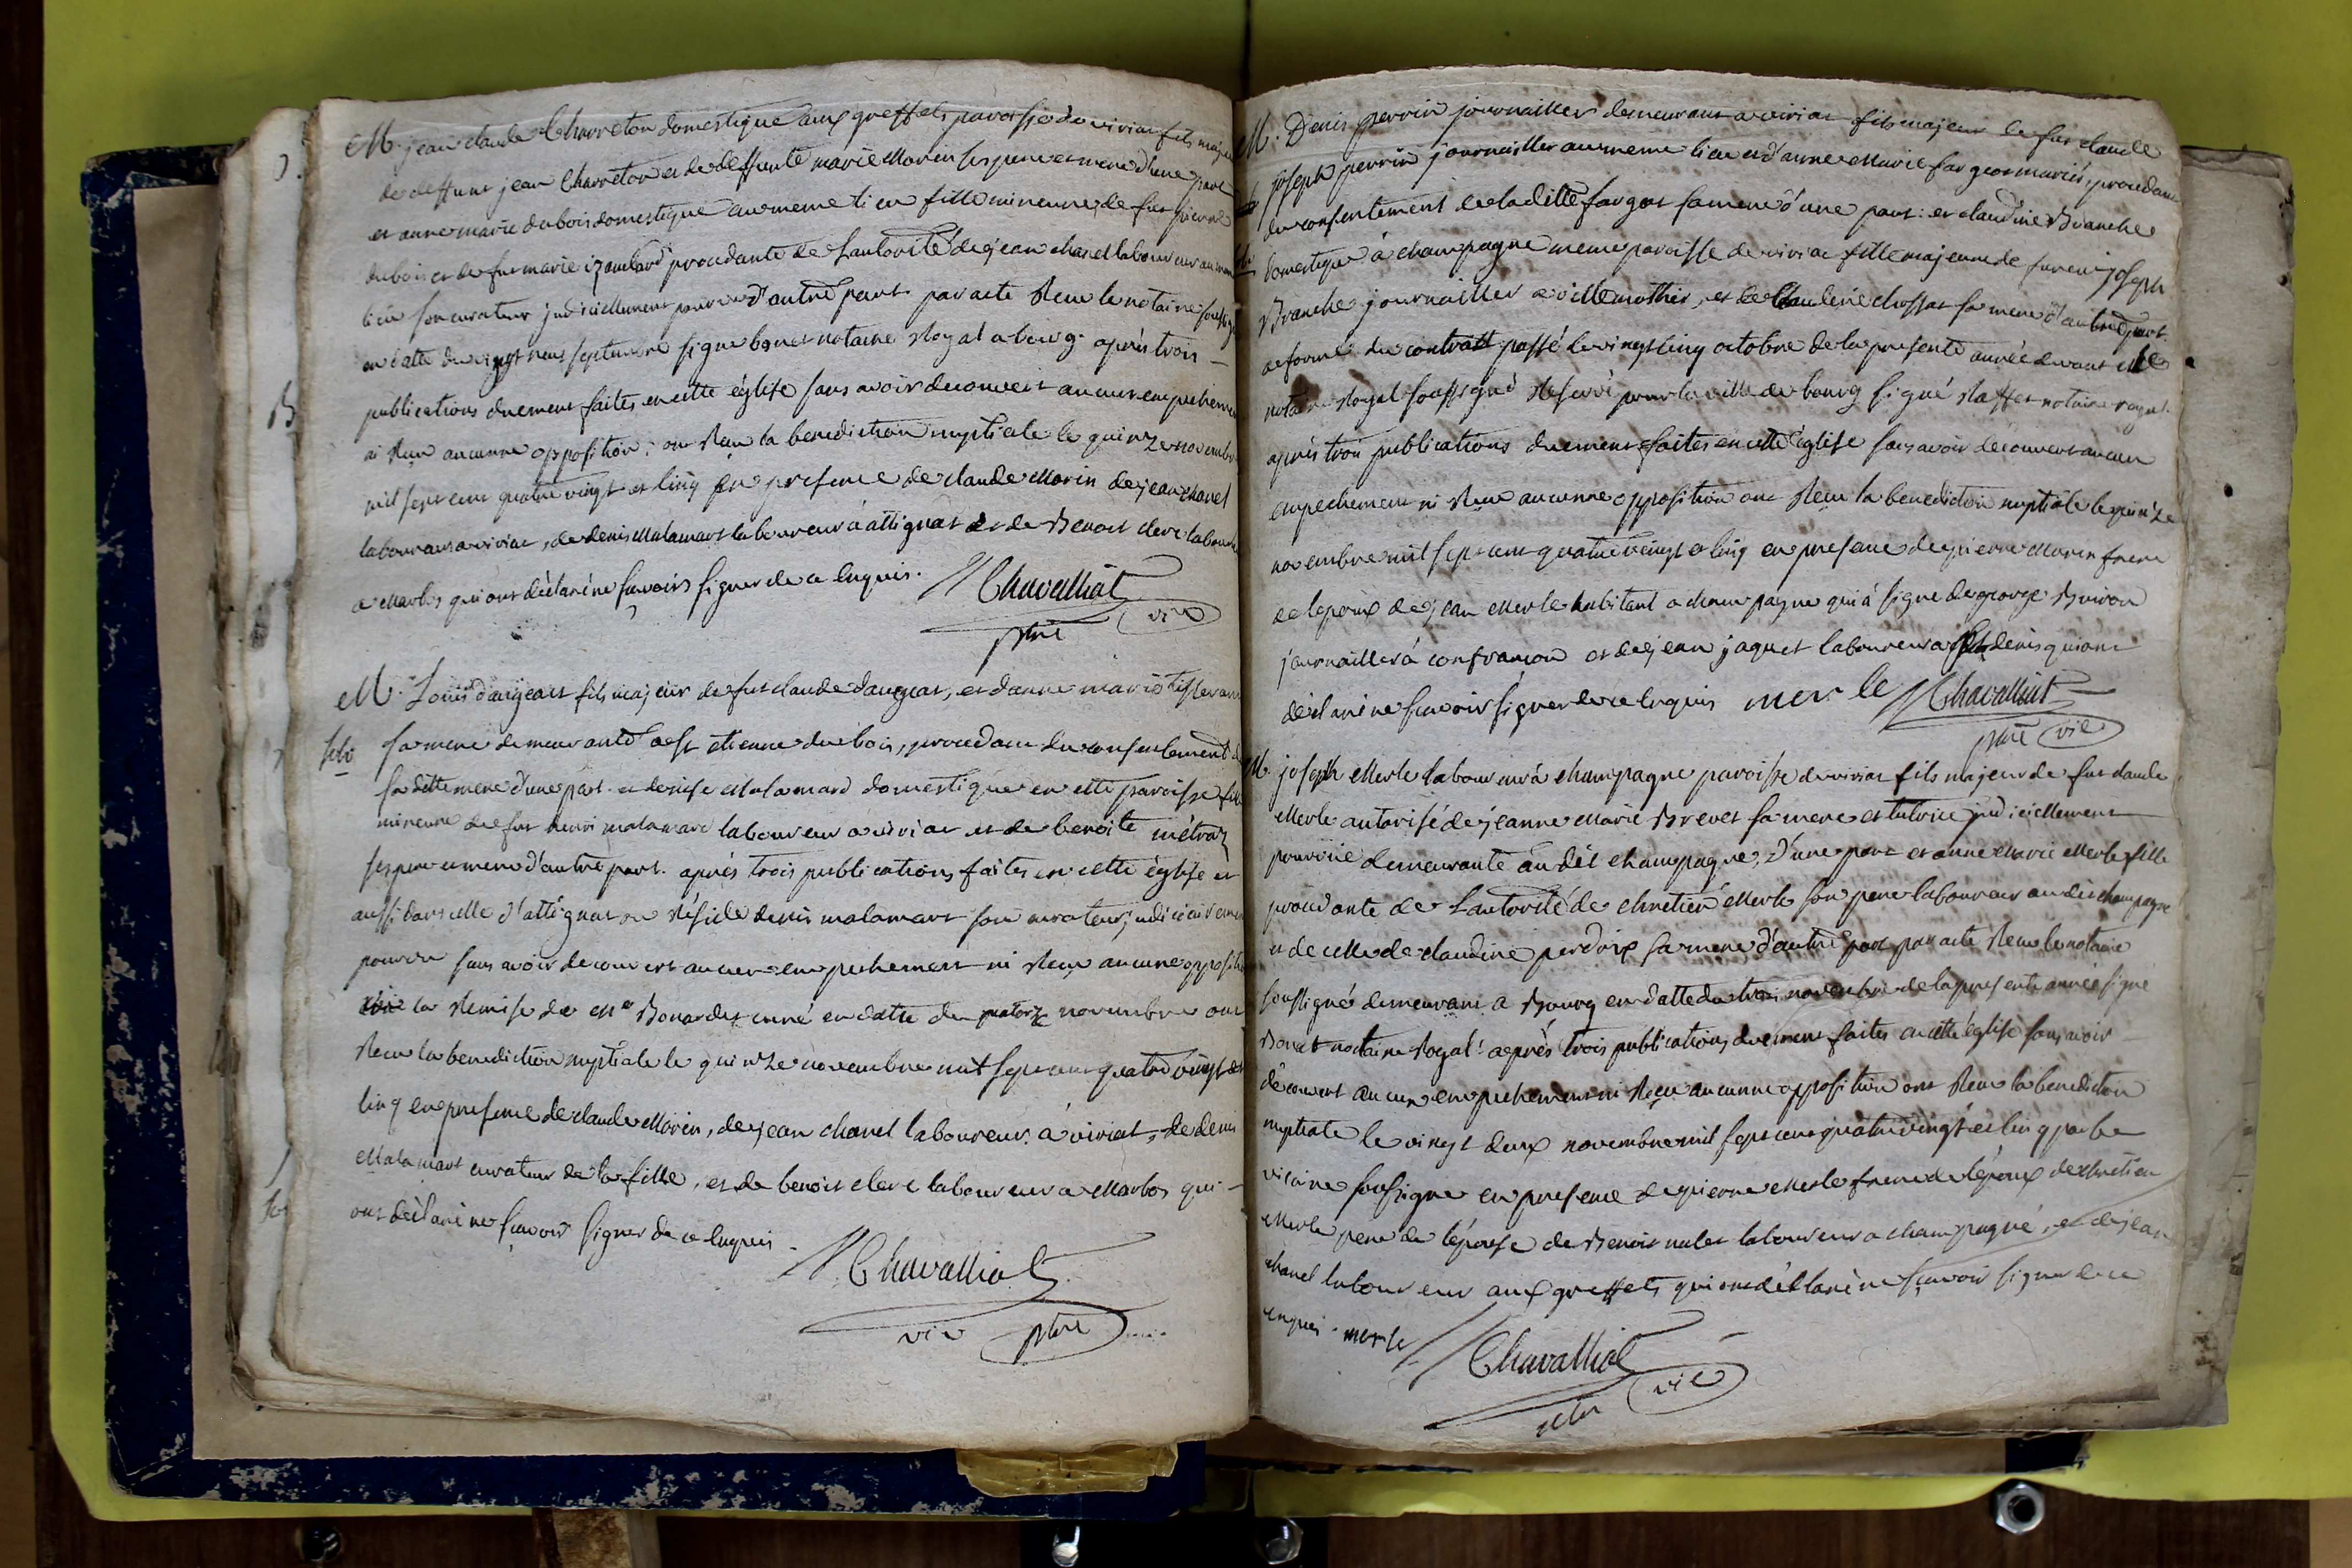 M. jean claude Charreton domestique aux greffets paroisse de viriat fils majeur
de deffunt jean Charreton et de deffunte marie Morin ses pere et mere d'une part
et anne marie dubois domestique au meme lieu fille mineure de fut pierre
dubois et de fut marie izambard procedante de L'autorité de jean chanel laboureur au meme
lieu son curateur judiciellement pourvu d'autre part par acte Recu le notaire soussigné
en datte du vingt neuf septembre signe bonet notaire Royal a bourg. après trois
publications duement faites en cette église sans avoir decouvert aucun empechement
ni Reçu aucunne opposition; ont Recu la benediction nuptiale le quinze novembre
mil sept cent quatre vingt et Cinq En presence de claude Morin de jean chanel
laboureurs a viriat, de denis Malamart laboureur à attignat Et de Benoit clere laboureur
a Marbos qui ont déclaré ne scavoir signer de ce Enquis.
Chavalliat
ptre vic
M. Louis dangeat fils majeur de fut claude dangeat, et d'anne marie
sa mere demeurante a St etienne du bois, procedant du consentement de
sa ditte mere d'une part. et denise Malamard domestique en cette paroisse fille
mineure de fut henri malamard laboureur a viriat et de benoite métraz
ses pere et mere d'autre part. après trois publications faites en cette église et
aussi dans celle d'attignat ou Réside denis malamart son curateur judiciairement
pourvu sans avoir decouvert aucun empechement ni Recu aucune opposition
la Remise de Mr Bonardet curé en datte du quatorze novembre ont
Recu la benediction nuptiale le quinze novembre mil sept cent quatre vingt et
Cinq en presence de claude Morin, de jean chanel laboureur à viriat, de denis
Malamart curateur de la fille, et de benoit clere laboureur a Marbos qui
ont déclaré ne scavoir signer de ce Enquis.
Chavalliat
vic ptre
M. Denis perrin journallier demeurant a viriat fils majeur de fut claude
joseph perrin journallier au meme lieu et d'anne Marie fargeot mariés, procedant
du consentement de la ditte fargeot sa mere d'une part: et claudine Branche
domestique à champagne meme paroisse de viriat fille majeure de joseph
Branche journallier a villemothier, et de Claudine chossat sa mere d'autre part.
a forme du contratt passé le vingt Cinq octobre de la presente année devant le
notaire Royal soussigné Reservé pour la ville de bourg signé notaire royal.
après trois publications duement faites en cette église sans avoir decouvert aucun
empechement ni Recu aucunne opposition ont Recu la benediction nuptiale le quinze
novembre mil sept cent quatre vingt et Cinq en presence de pierre Morin frere
de l'epoux de jean Merle habitant a champagne qui à signé de george Buiron
journallier à confrancon et de jean jaquet laboureur a St denis qui ont
déclaré ne scavoir signer de ce Enquis merle Chavalliat
ptre vic
M. joseph Merle laboureur à champagne paroisse de viriat fils majeur de fut claude
Merle autorisé de jeanne Marie Brevet sa mere et tutrice judiciellement
pourvüe demeurante au dit champagne, d'une part et anne Marie Merle fille
procedante de L'autorité de chretien Merle son pere laboureur au dit champagne
et de celle de claudine perdrix sa mere d'autre part par acte Recu le notaire
soussigné demeurant a Bourg en datte du trois novembre de la presente année signé
Bonet notaire Royal: après trois publications duement faites en cette église sans avoir
découvert aucun empechement ni Reçu aucunne opposition ont Recu la benediction
nuptiale le vingt deux novembre mil sept cent quatre vingt et Cinq par le
vicaire soussigné en presence de pierre Merle frere de l'époux de chretien
Merle pere de l'épouse de Benoit laboureur a champagne, et de jean
chanel laboureur aux greffets qui ont déclaré ne sçavoir signer de ce
enquis. merle
Chavalliat
vic